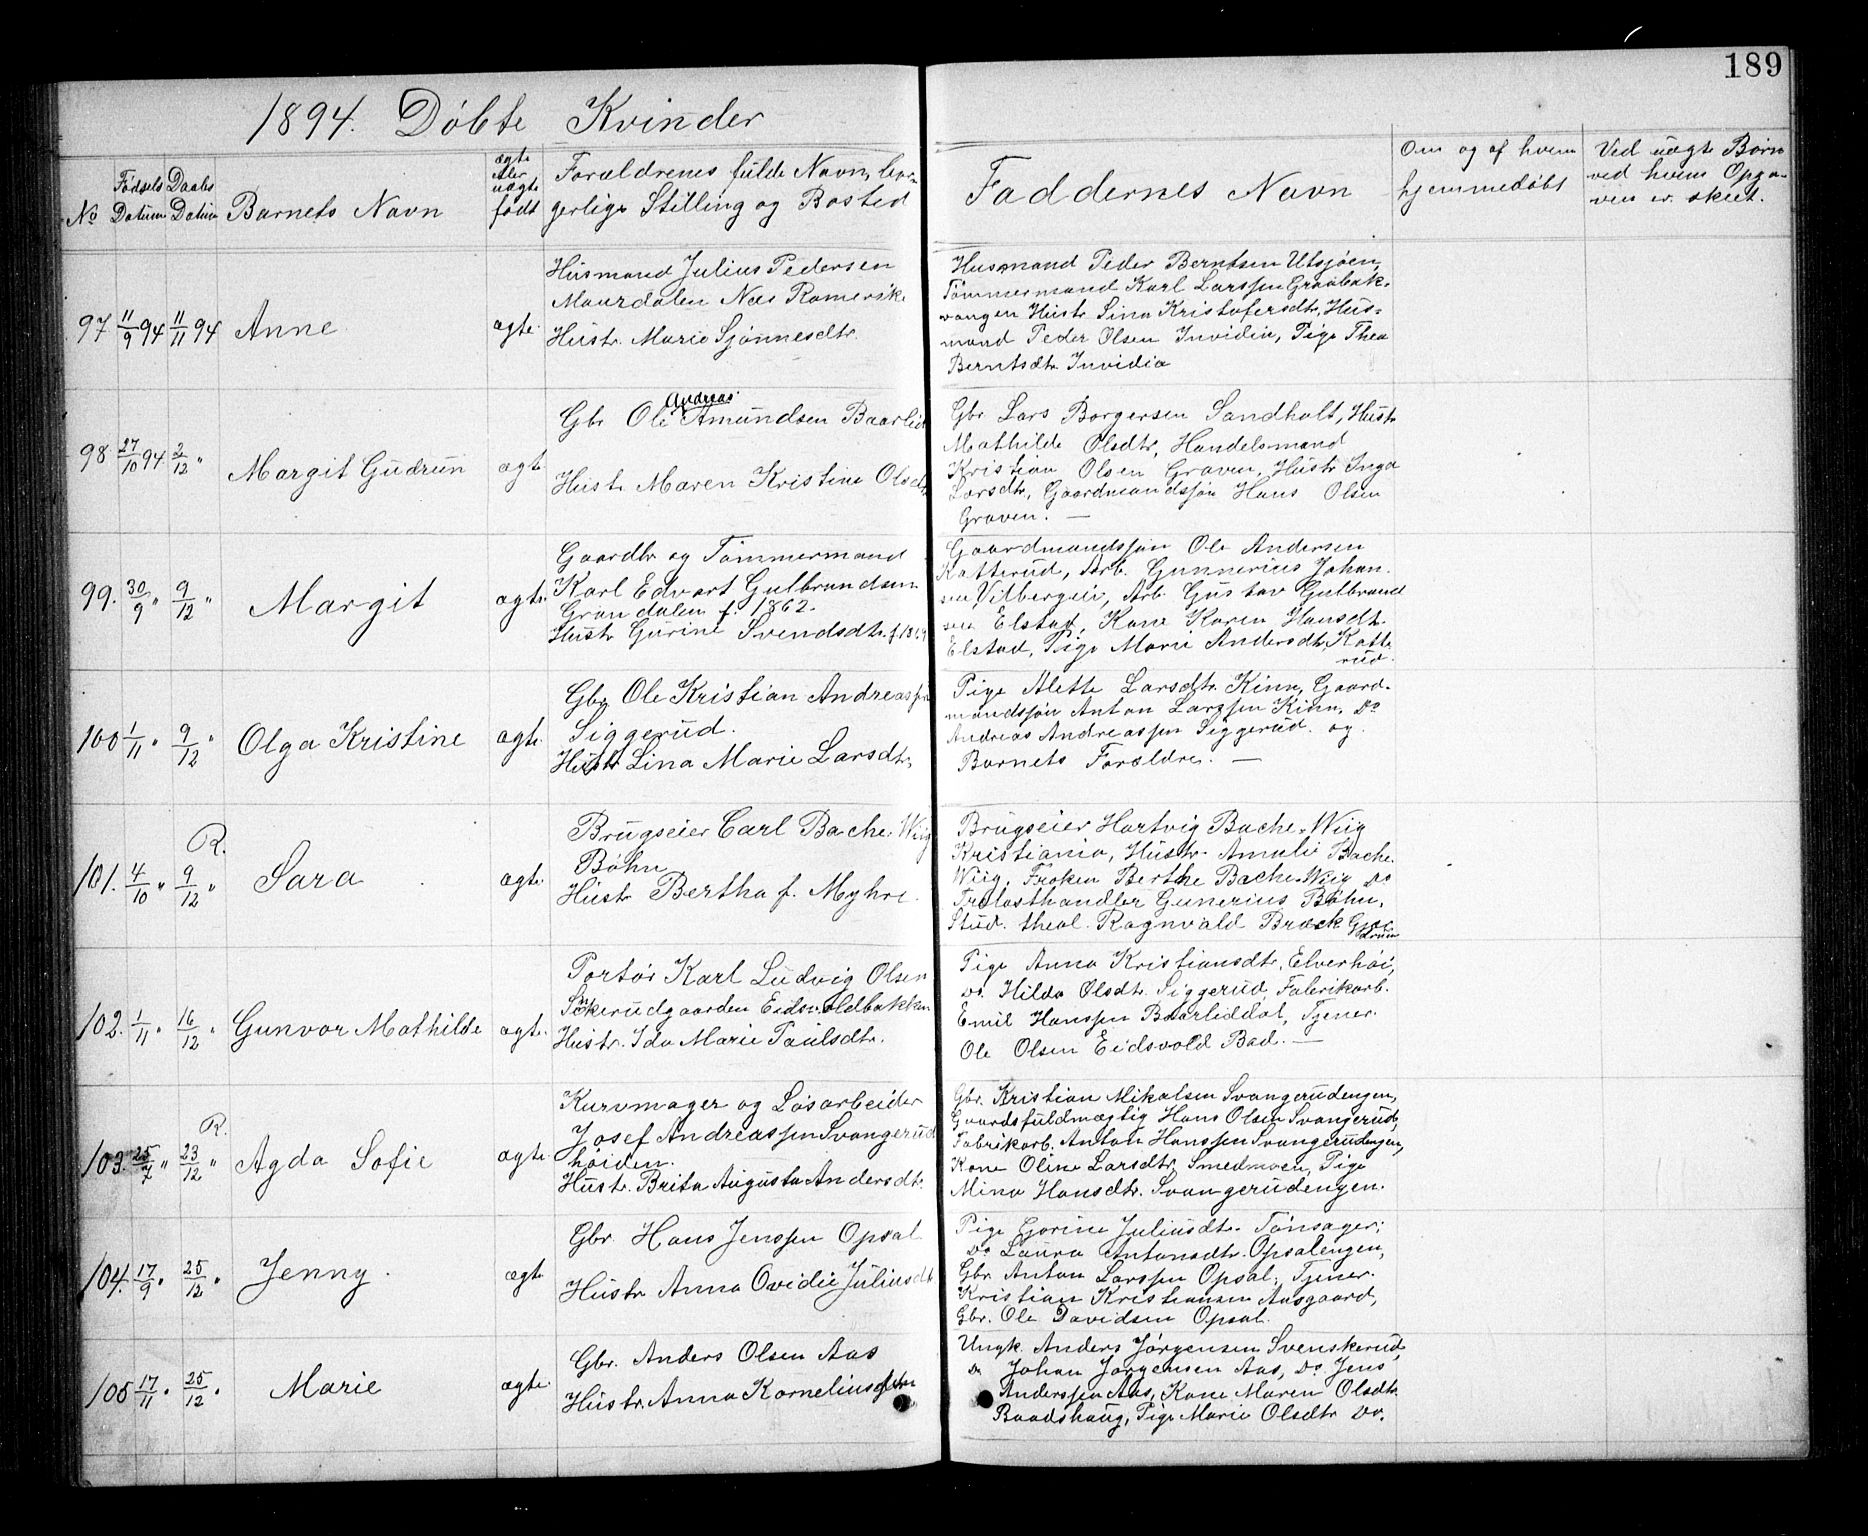 189
1894. Döbte Kvinder
No
Fødsels Datum
Daabs Datum
Barnets Navn
ægte eller uægte født
Forældrenes fulde Navn, bor-
gerlige Stilling og Bosted
Faddernes Navn
Om og af hvem
hjemmedöbt
Ved uægte Børn
ved hvem Opga-
ven er skeet.
97 11/9 94 11/11 94 Anne ægte
Husmand Julius Pedersen
Maurdalen Næs Romerike
Hustr. Marie Sjönnesdtr.
Husmand Peder Berntsen Utsjöen,
Tömmermand Karl Larssen Graabæk-
vangen Hustr Lina Kristofersdtr, Hus-
mand Peder Olsen Invidia, Pige Thea
Berntsdtr. Invidia
98 27/10 94 2/12 " Margit Gudrun ægte
Andreas
Gbr Ole Amundsen Baarlid
Hustr. Maren Kristine Olsdtr
Gbr Lars Borgersen Sandholt, Hustr
Mathilde Olsdtr, Handelsmand
Kristian Olsen Graven, Hustr Inga
Larsdtr, Gaardmandssön Hans Olsen
Graven. —
99. 30/9 " 9/12 " Margit ægte
Gaardbr og Tömmermand
Karl Edvart Gulbrandsen
Grandalen f. 1862.
Hustr Gurine Svendsdtr. f.
Gaardmandssön Ole Andersen
Katterud, Arb. Gunnerius Johan-
sen Vilbergeie, Arb Gustav Gulbrand
sen Elstad, Kone Karen Hansdtr.
Elstad, Pige Marie Andersdtr, Katte
rud.
100 1/11 " 9/12 " Olga Kristine ægte
Gbr Ole Kristian Andreassen
Siggerud.
Hustr Lina Marie Larsdtr,
Pige Alette Larsdtr. Kinn, Gaard-
mandssön Anton Larssen Kinn, Do
Andreas Andreassen Siggerud. og
Barnets Forældre. —
R.
101. 4/10 " 9/12 " Sara ægte
Brugseier Carl Bache-Wiig
Böhn
Hustr Bertha f. Myhre.
Brugseier Hartvig Bache-Wiig
Kristiania, Hustr. Amalie Bache-
Wiig, Frøken Berthe Bache-Wiig Do
Trelasthandler Gunerius Böhn,
Stud. theol. Ragnvald Bræck
102. 1/11 " 16/12 " Gunvor Mathilde ægte
Portör Karl Ludvig Olsen
Sökerudgaarden Eidsvoldbakken
Hustr. Ida Marie Paulsdtr.
Pige Anna Kristiansdtr, Elverhöi,
Do. Hilda Olsdtr. Siggerud, Fabrikarb.
Emil Hanssen Baarliddal, Tjener
Ole Olsen Eidsvold Bad. —
R.
103. 25/7 " 23/12 " Agda Sofie ægte
Kurvmager og Løsarbeider
Josef Andreassen Svangerud
höiden.
Hustr. Brita Augusta Andersdtr.
Gbr. Kristian Mikalsen Svangerudengen,
Gaardsfuldmægtig Hans Olsen Svangerud,
Fabrikarb. Anton Hanssen Svangerudengen,
Kone Oline Larsdtr, Smedmoen, Pige
Mina Hansdtr. Svangerudengen.
104. 17/9 " 25/12 " Jenny. ægte
Gbr. Hans Jenssen Opsal
Hustr. Anna Ovidie Juliusdtr
Pige Gorine Juliusdtr. Tönsager;
Do Laura Antonsdtr. Opsalengen,
Gbr. Anton Larssen Opsal; Tjener
Kristian Kristiansen Aasgaard,
Gbr. Ole Davidsen Opsal.
105 17/11 " 25/12 " Marie ægte
Gbr. Anders Olsen Aas
Hustr. Anna Korneliusdtr
Ungk. Anders Jørgensen Svenskerud,
Do Johan Jörgensen Aas, Do. Jens
Anderssen Aas, Kone Maren Olsdtr.
Baadshaug, Pige Marie Olsdtr Do.